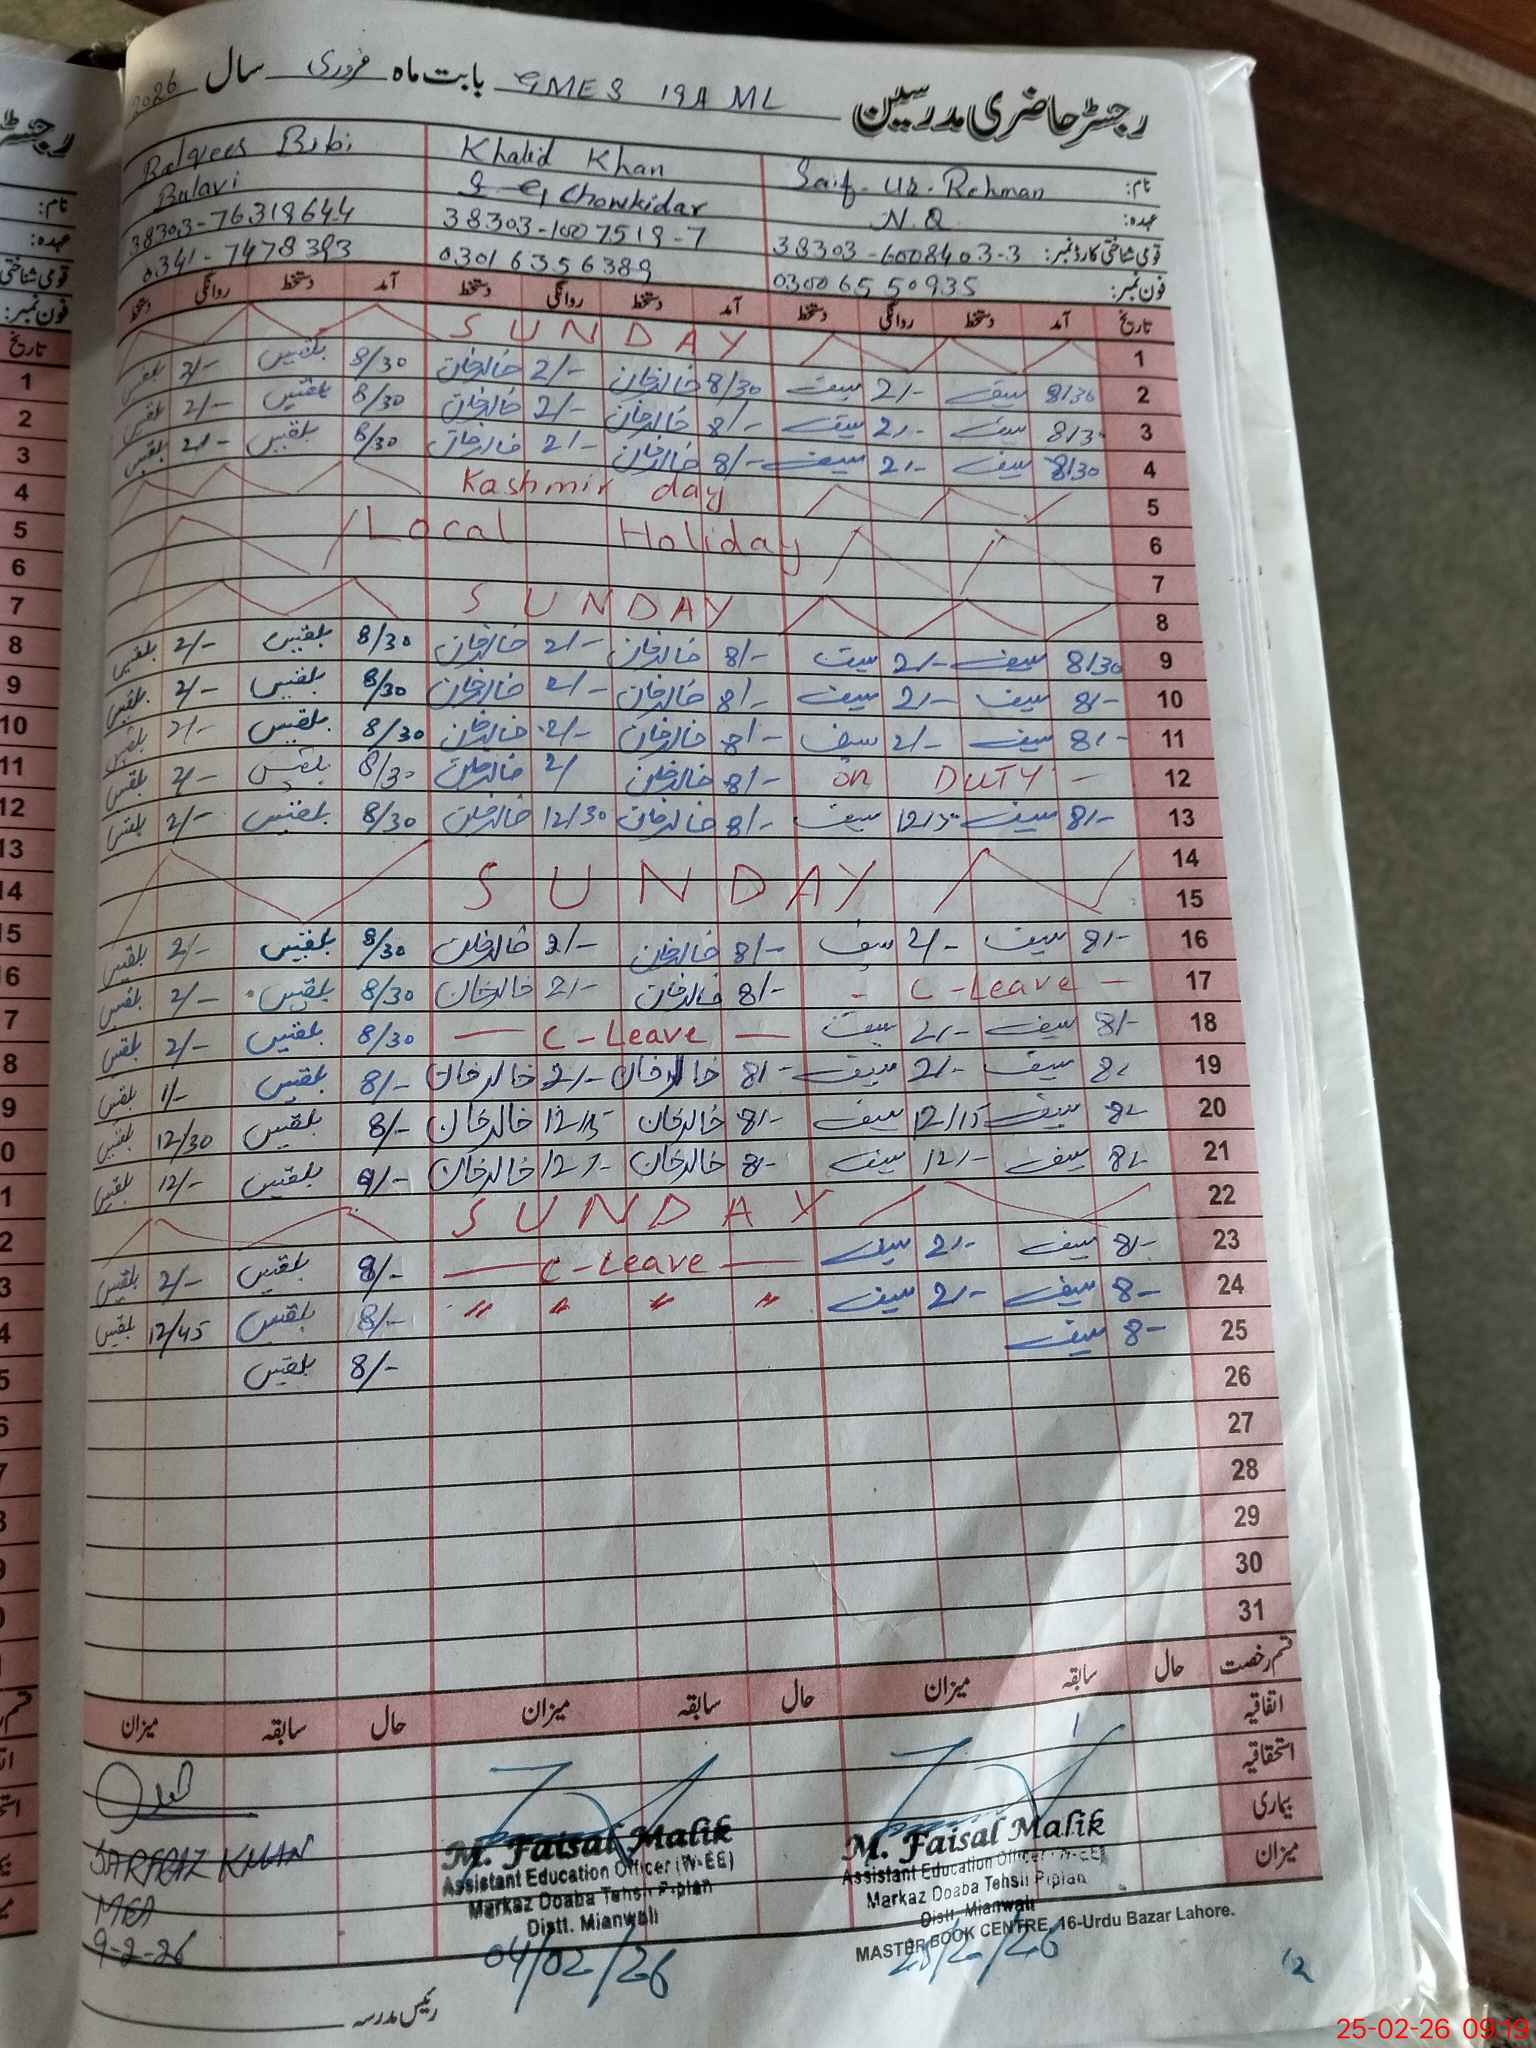 رجسٹر حاضری مدرسین GMES 19A ML بابت ماہ فروری سال 2026
نام: Saif-ur-Rehman Khalid Khan Balqees Bibi
عہدہ: N.Q Chowkidar Bulavi
قومی شناختی کارڈ نمبر: 38303-6008403-3 38303-1007519-7 38303-7631964-4
فون نمبر: 03006550935 03016356389 0341-7478393
تاریخ آمد دستخط روانگی دستخط آمد دستخط روانگی دستخط آمد دستخط روانگی دستخط
1 SUNDAY
2 8/30 سیف 2/- سیف 8/30 خالد خان 2/- خالد خان 8/30 بلقیس 2/- بلقیس
3 8/30 سیف 2/- سیف 8/- خالد خان 2/- خالد خان 8/30 بلقیس 2/- بلقیس
4 8/30 سیف 2/- سیف 8/- خالد خان 2/- خالد خان 8/30 بلقیس 2/- بلقیس
5 Kashmir day
6 Local Holiday
7
8 SUNDAY
9 8/30 سیف 2/- سیف 8/- خالد خان 2/- خالد خان 8/30 بلقیس 2/- بلقیس
10 8/- سیف 2/- سیف 8/- خالد خان 2/- خالد خان 8/30 بلقیس 2/- بلقیس
11 8/- سیف 2/- سیف 8/- خالد خان 2/- خالد خان 8/30 بلقیس 2/- بلقیس
12 on DUTY - 8/- خالد خان 2/ خالد خان 8/30 بلقیس 2/- بلقیس
13 8/- سیف 12/30 سیف 8/- خالد خان 12/30 خالد خان 8/30 بلقیس 2/- بلقیس
14
15 SUNDAY
16 8/- سیف 2/- سیف 8/- خالد خان 2/- خالد خان 8/30 بلقیس 2/- بلقیس
17 - C-Leave - 8/- خالد خان 2/- خالد خان 8/30 بلقیس 2/- بلقیس
18 8/- سیف 2/- سیف — C-Leave — 8/30 بلقیس 2/- بلقیس
19 8/- سیف 2/- سیف 8/- خالد خان 2/- خالد خان 8/- بلقیس 1/- بلقیس
20 8/- سیف 12/15 سیف 8/- خالد خان 12/15 خالد خان 8/- بلقیس 12/30 بلقیس
21 8/- سیف 12/- سیف 8/- خالد خان 12/- خالد خان 9/- بلقیس 12/- بلقیس
22 SUNDAY
23 8/- سیف 2/- سیف — C-Leave — 8/- بلقیس 2/- بلقیس
24 8- سیف 2/- سیف " " " " 8/- بلقیس 12/45 بلقیس
25 8- سیف 8/- بلقیس
26
27
28
29
30
31
قسم رخصت حال سابقہ میزان حال سابقہ میزان حال سابقہ میزان
اتفاقیہ 1
استحقاقیہ
بیماری
میزان
M. Faisal Malik
Assistant Education Officer (W-EE)
Markaz Doaba Tehsil Piplan
Distt. Mianwali
M. Faisal Malik
Assistant Education Officer (W-EE)
Markaz Doaba Tehsil Piplan
Distt. Mianwali
04/02/26
SARFRAZ KHAN
MEA
9-2-26
MASTER BOOK CENTRE, 16-Urdu Bazar Lahore.
رئیس مدرسہ
رجسٹر
نام:
عہدہ:
قومی شناختی
فون نمبر:
تاریخ
1
2
3
4
5
6
7
8
9
10
11
12
13
14
25-02-26 09:19